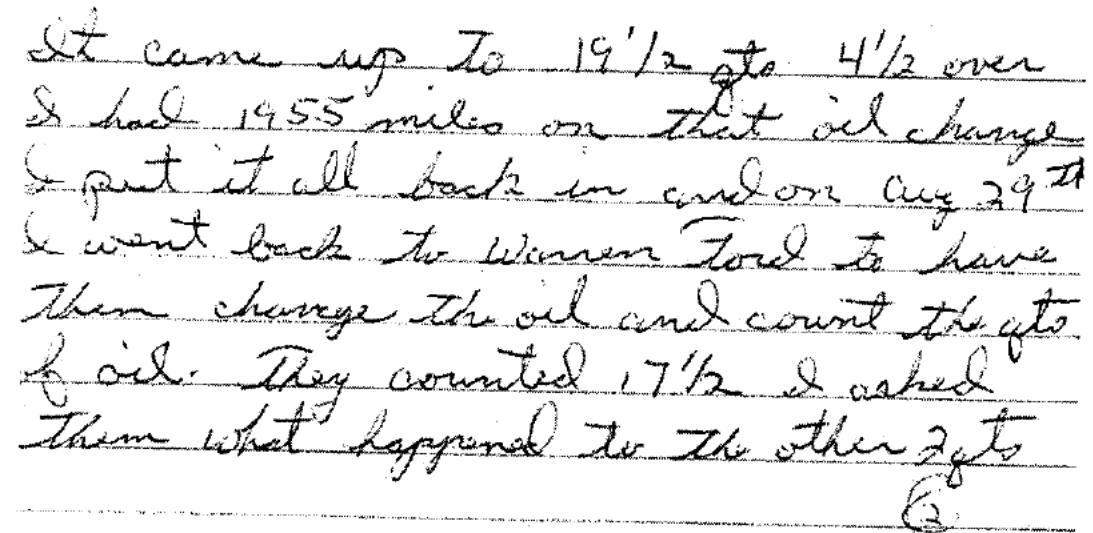 It came up to 19 1/2 qts 4 1/2 over
I had 1955 miles on that oil change
I put it all back in and on Aug 29th
I went back to Warren Ford to have
them change the oil and count the qts
of oil. They counted 17 1/2 I asked
them what happened to the other 2 qts
2